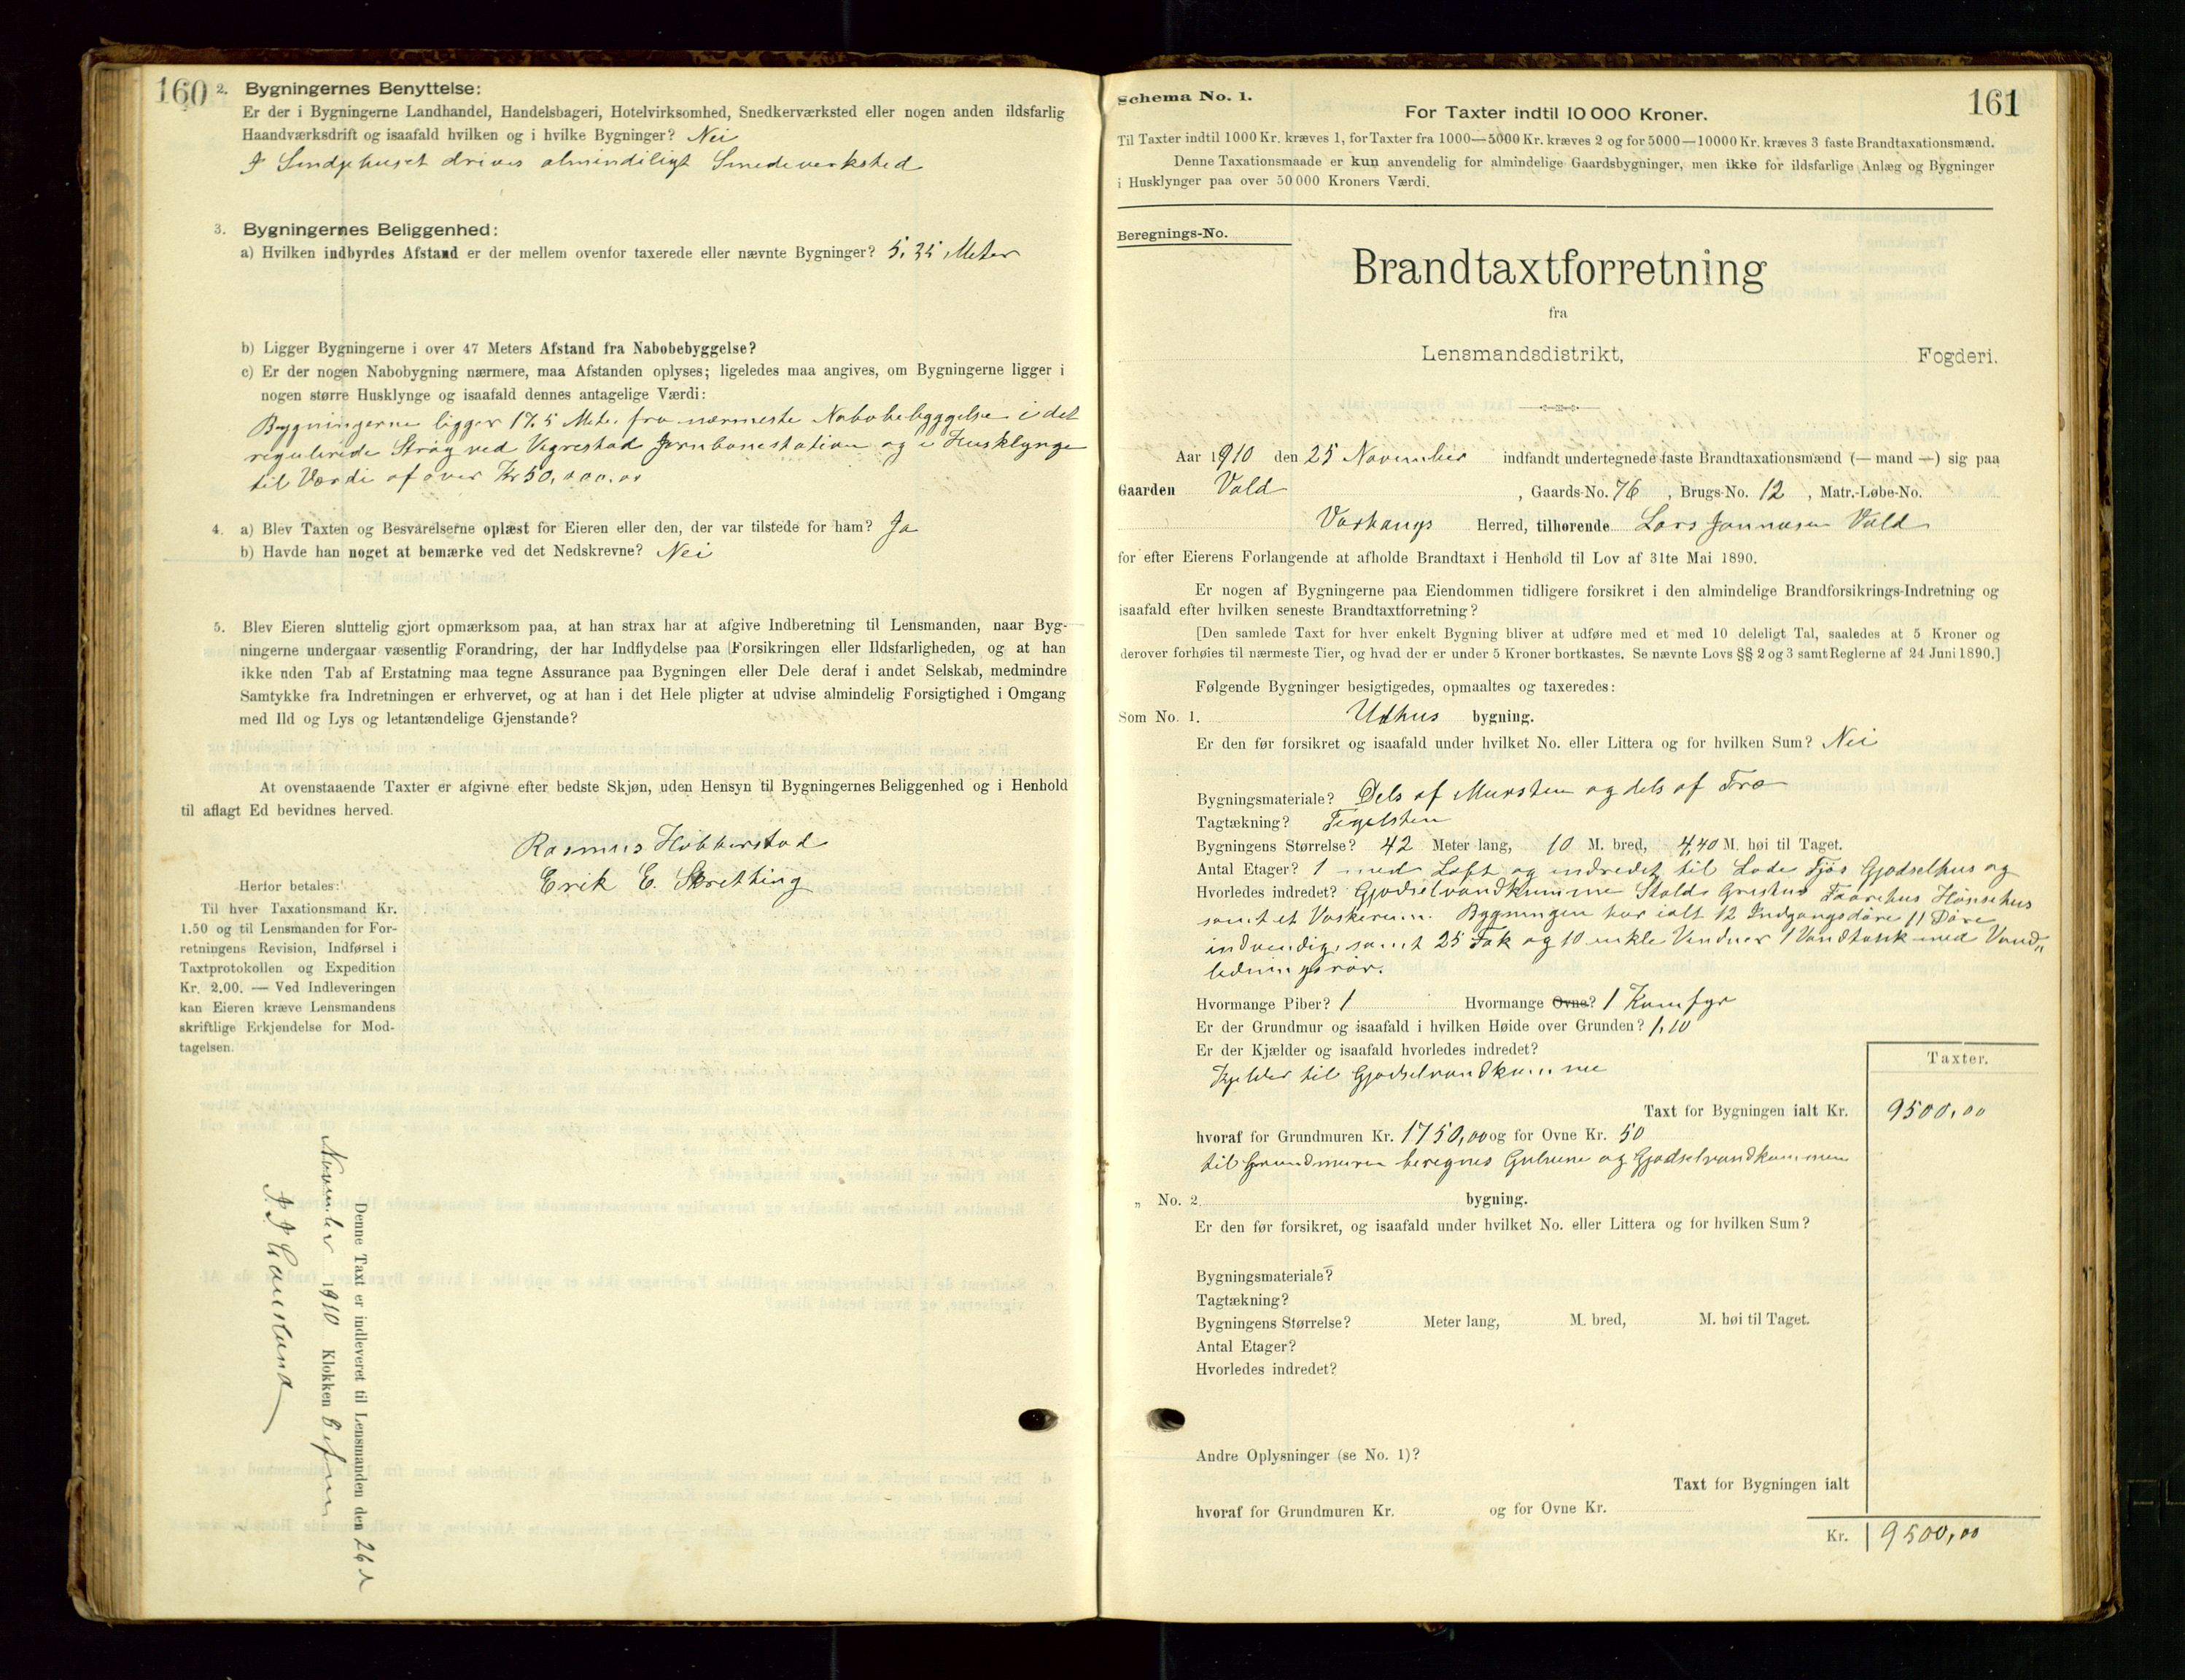 160
2. Bygningernes Benyttelse:
Er der i Bygningerne Landhandel, Handelsbageri, Hotelvirksomhed, Snedkerværksted eller nogen anden ildsfarlig
Haandværksdrift og isaafald hvilken og i hvilke Bygninger? Nei
I drives almindeligt Smedeverksted
3. Bygningernes Beliggenhed:
a) Hvilken indbyrdes Afstand er der mellem ovenfor taxerede eller nævnte Bygninger? 5,35 Meter
b) Ligger Bygningerne i over 47 Meters Afstand fra Nabobebyggelse?
c) Er der nogen Nabobygning nærmere, maa Afstanden oplyses; ligeledes maa angives, om Bygningerne ligger i
nogen større Husklynge og isaafald dennes antagelige Værdi:
Bygningerne ligger 17.5 Meter fra nærmeste Nabobebyggelse i det
regulerede Strøg ved Vigrestad Jernbanestation og i Husklynge
til Værdi af over Kr 50,000.00
4. a) Blev Taxten og Besvarelserne oplæst for Eieren eller den, der var tilstede for ham? Ja
b) Havde han noget at bemærke ved det Nedskrevne? Nei
5. Blev Eieren sluttelig gjort opmærksom paa, at han strax har at afgive Indberetning til Lensmanden, naar Byg-
ningerne undergaar væsentlig Forandring, der har Indflydelse paa Forsikringen eller Ildsfarligheden, og at han
ikke uden Tab af Erstatning maa tegne Assurance paa Bygningen eller Dele deraf i andet Selskab, medmindre
Samtykke fra Indretningen er erhvervet, og at han i det Hele pligter at udvise almindelig Forsigtighed i Omgang
med Ild og Lys og letantændelige Gjenstande?
At ovenstaaende Taxter er afgivne efter bedste Skjøn, uden Hensyn til Bygningernes Beliggenhed og i Henhold
til aflagt Ed bevidnes herved.
Rasmus Hobberstad
Erik E. Skretting
Herfor betales:
Til hver Taxationsmand Kr.
1.50 og til Lensmanden for For-
retningens Revision, Indførsel i
Taxtprotokollen og Expedition
Kr. 2.00. — Ved Indleveringen
kan Eieren kræve Lensmandens
skriftlige Erkjendelse for Mod-
tagelsen.
Denne Taxt er indleveret til Lensmanden den 26 d
November 1910 Klokken
161
Schema No. 1.
For Taxter indtil 10 000 Kroner.
Til Taxter indtil 1000 Kr. kræves 1, for Taxter fra 1000—5000 Kr. kræves 2 og for 5000—10000 Kr. kræves 3 faste Brandtaxationsmænd.
Denne Taxationsmaade er kun anvendelig for almindelige Gaardsbygninger, men ikke for ildsfarlige Anlæg og Bygninger
i Husklynger paa over 50 000 Kroners Værdi.
Beregnings-No.
Brandtaxtforretning
fra
Lensmandsdistrikt, Fogderi.
Aar 1910 den 25 November indfandt undertegnede faste Brandtaxationsmænd (— mand —) sig paa
Gaarden Vold , Gaards-No. 76 , Brugs-No. 12 , Matr.-Løbe-No.
Varhaugs Herred, tilhørende Lars Jonnasen Vold
for efter Eierens Forlangende at afholde Brandtaxt i Henhold til Lov af 31te Mai 1890.
Er nogen af Bygningerne paa Eiendommen tidligere forsikret i den almindelige Brandforsikrings-Indretning og
isaafald efter hvilken seneste Brandtaxtforretning?
[Den samlede Taxt for hver enkelt Bygning bliver at udføre med et med 10 deleligt Tal, saaledes at 5 Kroner og
derover forhøies til nærmeste Tier, og hvad der er under 5 Kroner bortkastes. Se nævnte Lovs §§ 2 og 3 samt Reglerne af 24 Juni 1890.]
Følgende Bygninger besigtigedes, opmaaltes og taxeredes:
Som No. 1. Udhus bygning.
Er den før forsikret og isaafald under hvilket No. eller Littera og for hvilken Sum? Nei
Bygningsmateriale? Dels af Mursten og dels af Træ
Tagtækning? Tegelsten
Bygningens Størrelse? 42 Meter lang, 10 M. bred, 4,40 M. høi til Taget.
Antal Etager? 1 med Loft og indredet til Lade Fjøs Gjødselhus og
Hvorledes indredet? Gjødselvandkumme Stald Grishus Faarehus Hønsehus
samt et Vaskerum. Bygningen har ialt 12 Indgangsdøre 11 Døre
indvendig, samt 25 Fak og 10 enkle Vinduer 1 Vandtank med Vand„
ledningsrør.
Hvormange Piber? 1 Hvormange Ovne? 1 Komfyr
Er der Grundmur og isaafald i hvilken Høide over Grunden? 1,10
Er der Kjælder og isaafald hvorledes indredet?
Kjelder til Gjødselvandkumme
Taxter.
Taxt for Bygningen ialt Kr. 9500,00
hvoraf for Grundmuren Kr. 1750,00 og for Ovne Kr. 50
til Grundmuren beregnes Gulvene og Gjødselvandkummen
„ No. 2 bygning.
Er den før forsikret, og isaafald under hvilket No. eller Littera og for hvilken Sum?
Bygningsmateriale?
Tagtækning?
Bygningens Størrelse? Meter lang, M. bred, M. høi til Taget.
Antal Etager?
Hvorledes indredet?
Andre Oplysninger (se No. 1)?
Taxt for Bygningen ialt
hvoraf for Grundmuren Kr. og for Ovne Kr.
Kr. 9500,00